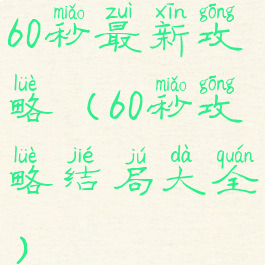 miǎo zuì xīn gōng
60秒最新攻
lüè miǎo gōng
略（60秒攻
lüè jié jú dà quán
略结局大全
）